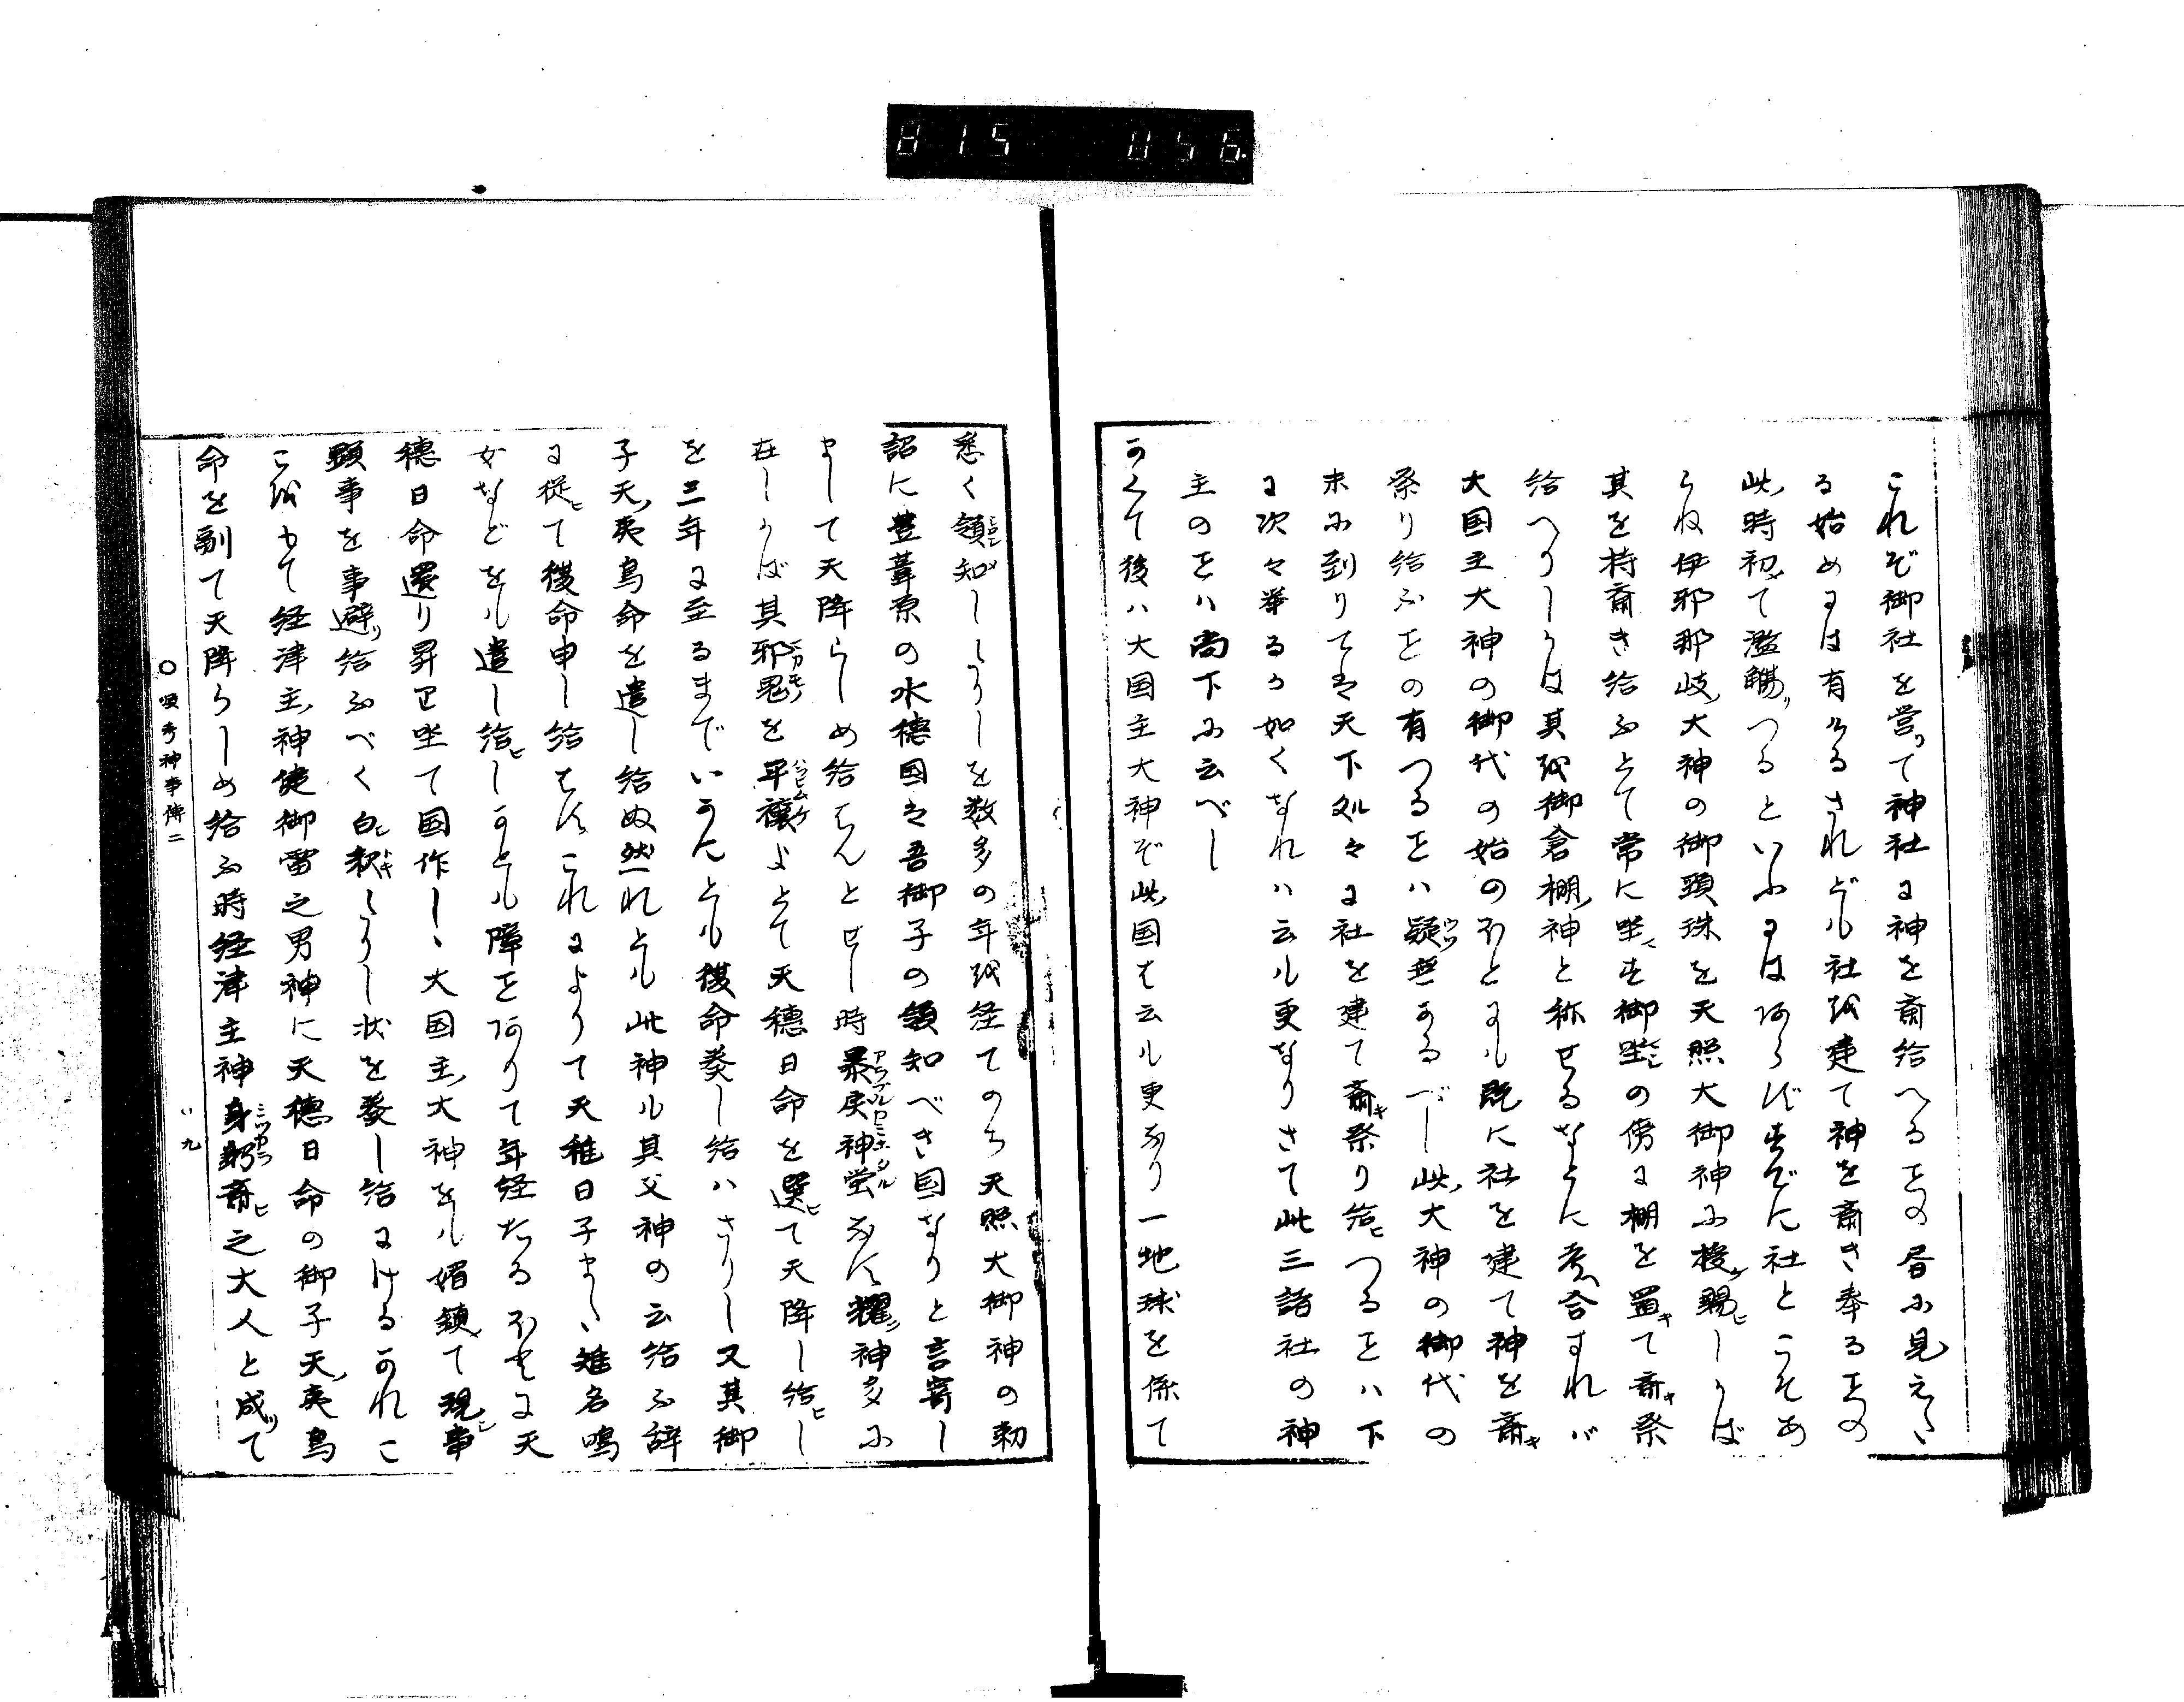 815 056.
これぞ御社を営て神社に神を斎給へる𛀁の昬に見え、
る始めには有ける されども社を建て神を斎き奉る𛀁の
此時初て濫觴つるといふには あらず 既に社とこそあ
らね伊邪那岐大神の御頸珠を天照大御神に授賜ひしかば
其を持斎き給ふとて常に坐す御坐の傍に棚を置て斎祭
給へりしかは其を御倉棚神と称せるなどに考合すれば
大国主大神の御代の始のほとにも既に社を建て神を斎
祭り給ふことの有つることハ疑無かるべし此大神の御代の
末に到りてハ天下処々に社を建て斎祭り給ひつることハ下
に次々挙るが如くなれハ云ハ更なりさて此三諸社の神
主のことハ尚下に云べし
かくて後ハ大国主大神ぞ此国は云ハ更なり一地球を係て
悉く領知しゝかしを数多の年を経てのち天照大御神の勅
詔に豊葦原の水穂国は吾御子の領知べき国なりと言寄し
まして天降らしめ給はんとせし時暴戻神蛍なす耀神多に
在しかば其邪鬼を平穣よとて天穂日命を選て天降し給ひし
を三年に至るまでいかにとも復命奏し給ハさりし又其御
子天夷鳥命を遣し給ぬ然れとも此神も其父神の云給ふ辞
に従て復命申し給はすこれによりて天稚日子また雉名鳴
女などをも遣し給ひしかとも障ことありて年経たるほとに天
穂日命還り昇り坐て国作しゝ大国主大神をも媚鎮て現事
顕事を事避給ふべく白釈しゝかし状を奏し給にけるかれこ
こをもて経津主神健御雷之男神に天穂日命の御子天夷鳥
命を副て天降らしめ給ふ時経津主神身躬斎之大人と成て
〇頌考神事傳二
い九